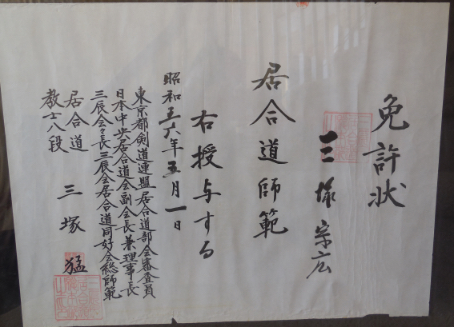 免許状
三塚宗広
居合道師範
右授与する
昭和五六年五月一日
東京都剣道連盟居合道部会審査員
日本中央居合道会副会長兼理事長
三辰会々長三辰会居合道同好会総師範
居合道
教士八段 三塚猛